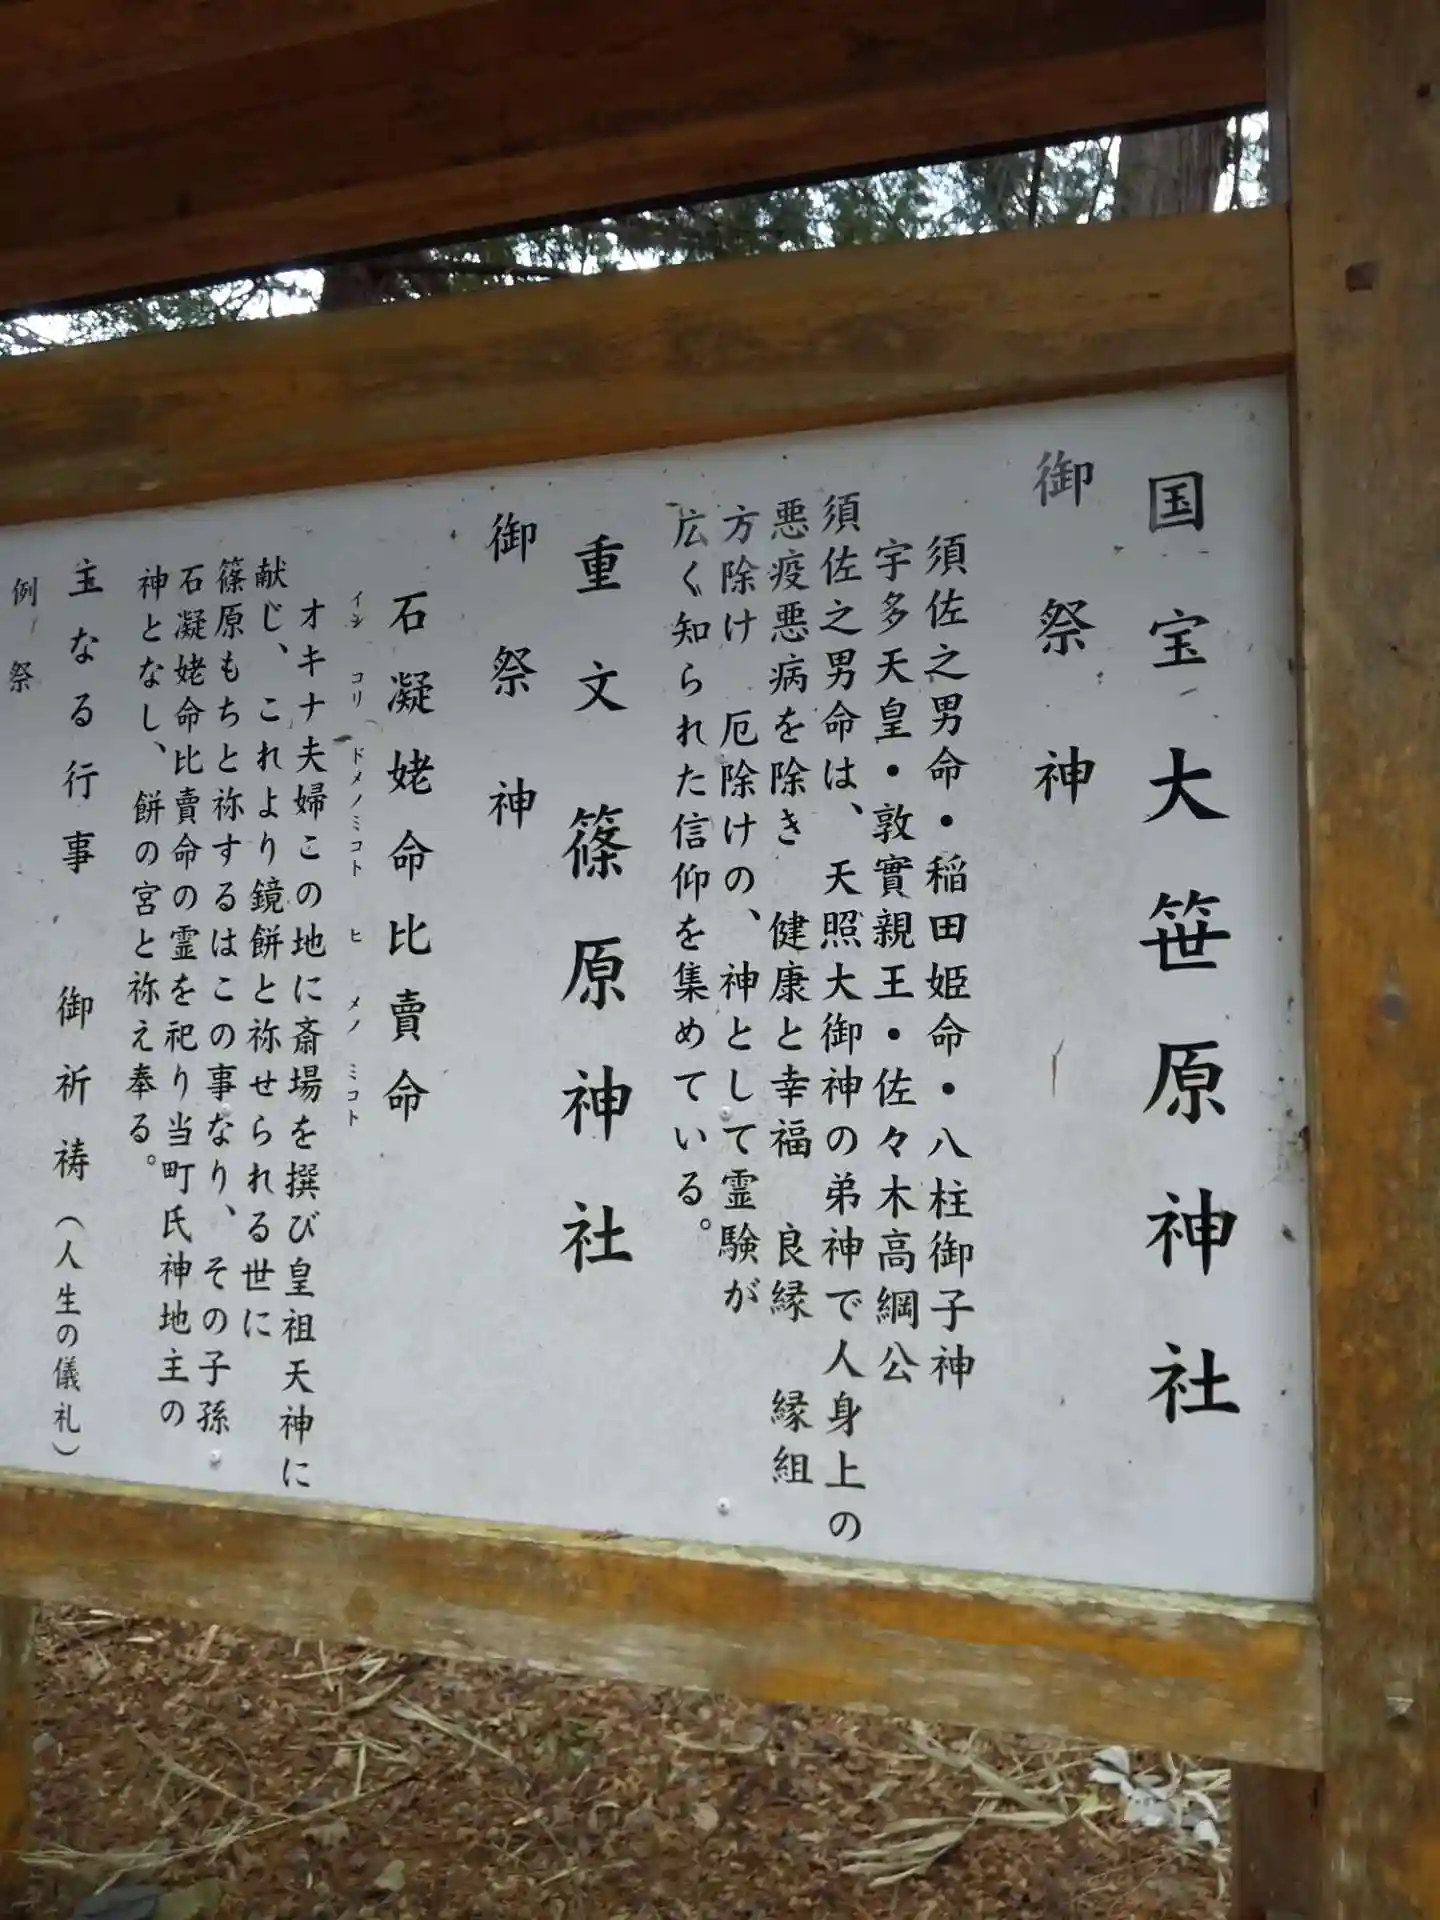 国宝大笹原神社
御祭神
須佐之男命・稲田姫命・八柱御子神
宇多天皇・敦實親王・佐々木高綱公
須佐之男命は、天照大御神の弟神で人身上の
悪疫悪病を除き 健康と幸福 良縁 縁組
方除け 厄除けの、神として霊験が
広く知られた信仰を集めている。
重文 篠原神社
御祭神
石凝姥命比賣命
イシ コリ ドメノミコト ヒ メノ ミコト
オキナ夫婦この地に斎場を撰び皇祖天神に
献じ、これより鏡餅と祢せられる世に
篠原もちと祢するはこの事なり、その子孫
石凝姥命比賣命の霊を祀り当町氏神地主の
神となし、餅の宮と祢え奉る。
主なる行事 御祈祷(人生の儀礼)
例祭